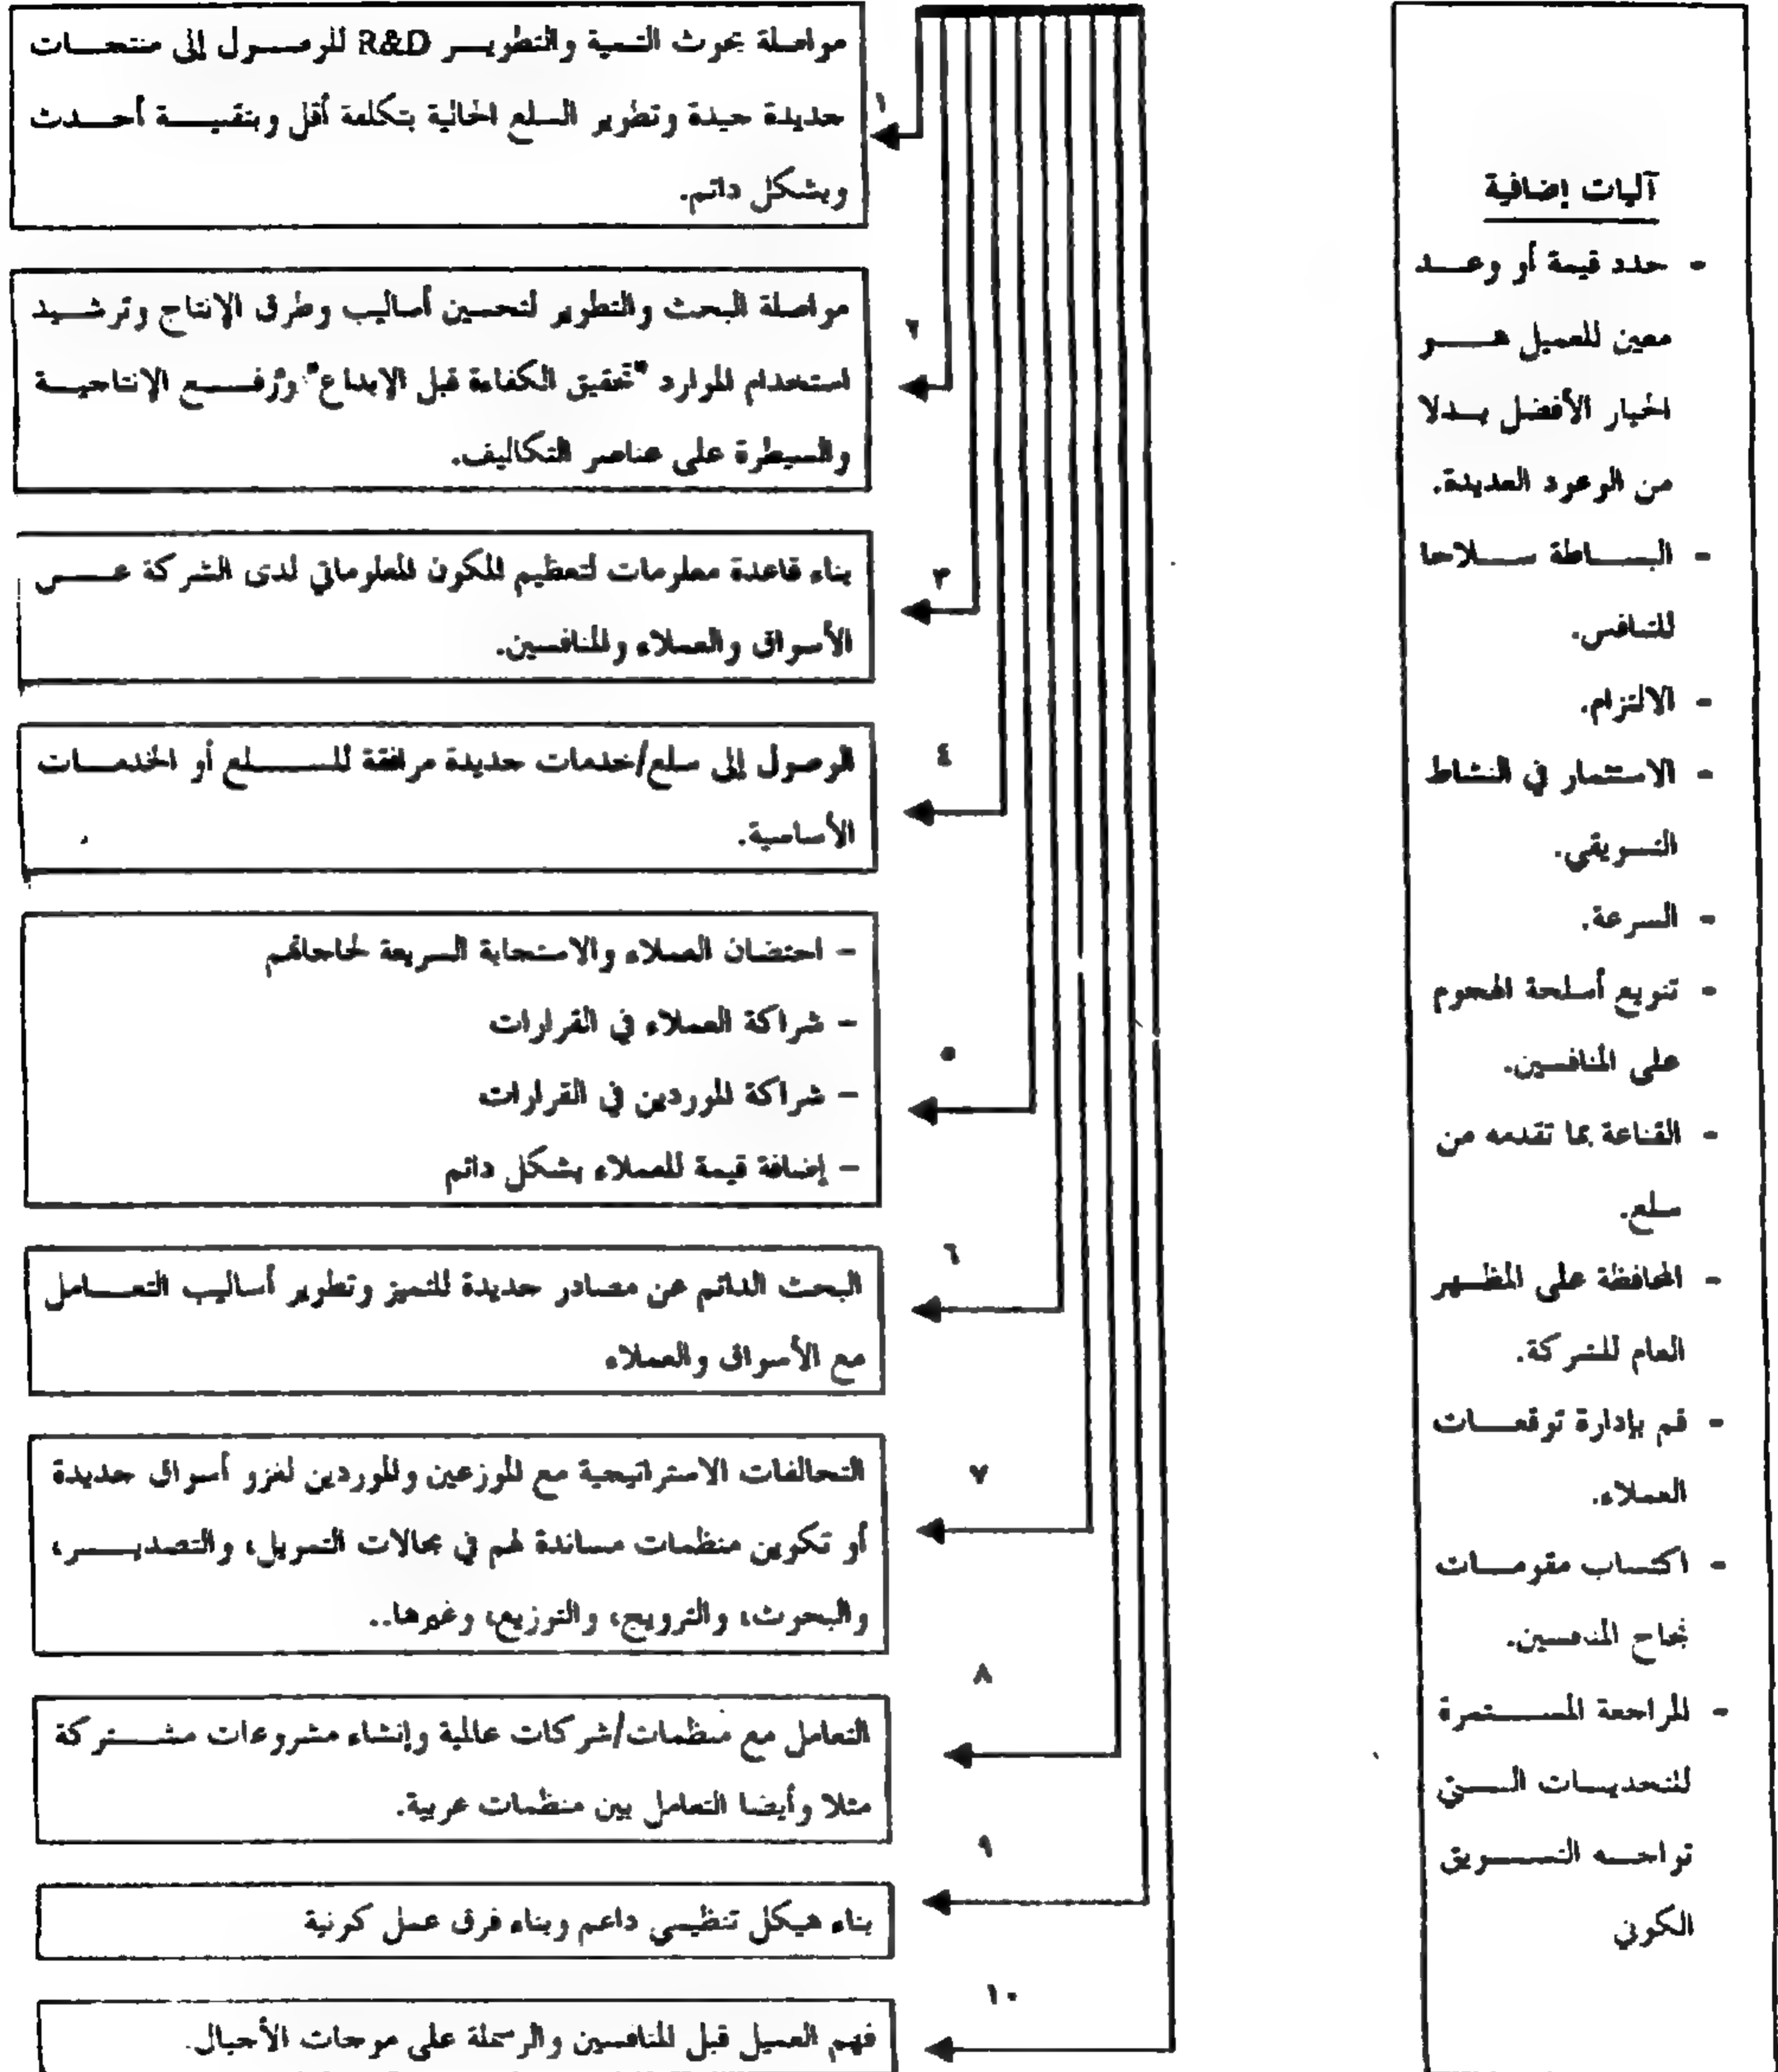 آليات إضافية
- حدد قيمة أو وعـــد
معين للعميل هـــو
الخيار الأفضل بـــدلا
من الوعود العديدة.
- البـــساطة ســـلاحا
للتنافس.
- الالتزام.
- الاستثمار في النشاط
التسويقي.
- السرعة.
- تنويع أسلحة الهجوم
على المنافسين.
- القناعة بما تقدمه من
سلع.
- المحافظة على المظـــهر
العام للشركة.
- قم بإدارة توقعـــات
العملاء.
- اكتساب مقومـــات
نجاح المنافسين.
- المراجعة المســـتمرة
للتحديـــات الـــتي
تواجـــه التـــسويق
الكوني
١
مواصلة بحوث التنمية والتطويـــر R&D للوصـــول إلى منتجـــات
جديدة جيدة وتطوير السلع الحالية بتكلفة أقل وبتقنيـــة أحـــدث
وبشكل دائم.
٢
مواصلة البحث والتطوير لتحسين أساليب وطرق الإنتاج وترشـــيد
استخدام الموارد "تحقيق الكفاءة قبل الابداع" ورفـــع الإنتاجيـــة
والسيطرة على عناصر التكاليف.
٣
بناء قاعدة معلومات لتعظيم المكون المعلوماتي لدى الشركة عـــن
الأسواق والعملاء والمنافسين.
٤
الوصول إلى سلع/خدمات جديدة مرافقة للســـلع أو الخدمـــات
الأساسية.
٥
- احتضان العملاء والاستجابة السريعة لحاجاتهم
- شراكة العملاء في القرارات
- شراكة الموردين في القرارات
- إضافة قيمة للعملاء بشكل دائم
٦
البحث الدائم عن مصادر جديدة للتميز وتطوير أساليب التعـــامل
مع الأسواق والعملاء
٧
التحالفات الاستراتيجية مع الموزعين والموردين لغزو أسواق جديدة
أو تكوين منظمات مساندة لهم في مجالات التمويل، والتصديـــر،
والبحوث، والترويج، والتوزيع، وغيرها..
٨
التعامل مع منظمات/شركات عالمية وإنشاء مشروعات مشـــتركة
مثلا وأيضا التعامل بين منظمات عربية.
٩
بناء هيكل تنظيمي داعم وبناء فرق عمل كونية
١٠
فهم العميل قبل المنافسين والرسملة على موجات الأجيال.